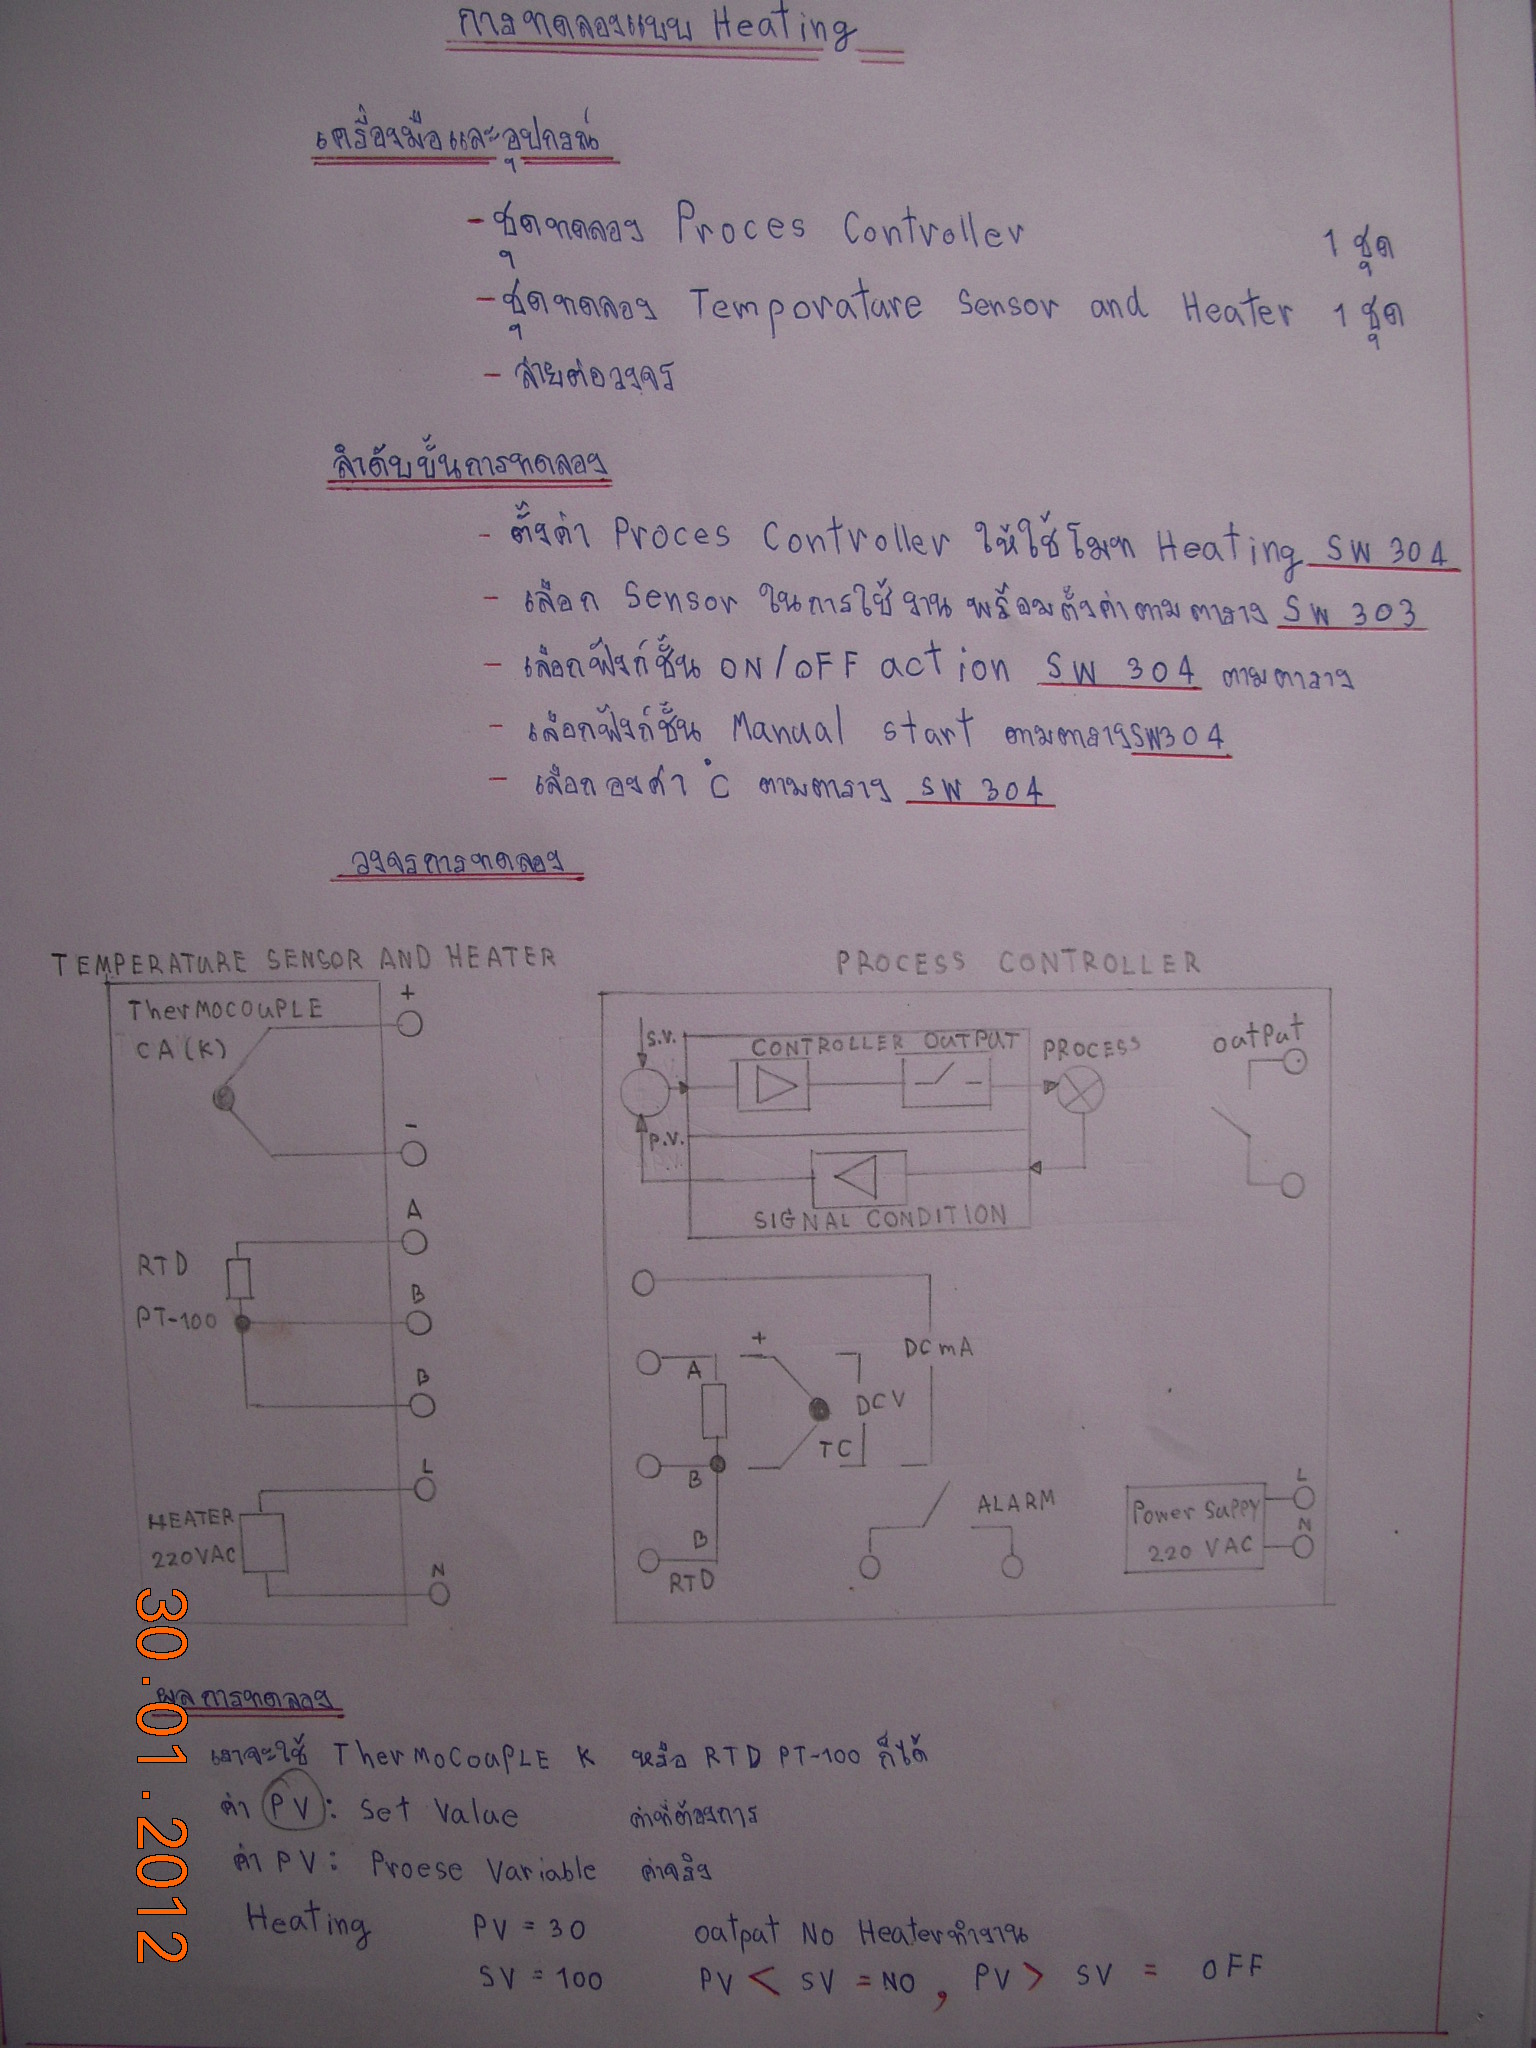 การทดลองแบบ Heating
เครื่องมือและอุปกรณ์
- ชุดทดลอง Proces Controller 1 ชุด
- ชุดทดลอง Temporature Sensor and Heater 1 ชุด
- สายต่อวงจร
ลำดับขั้นการทดลอง
- ตั้งค่า Proces Controller ให้ใช้โมท Heating SW 304
- เลือก Sensor ในการใช้งาน พร้อมตั้งค่าตามตาราง SW 303
- เลือกฟังก์ชั้น ON/OFF action SW 304 ตามตาราง
- เลือกฟังก์ชั้น Manual start ตามตารางSW304
- เลือกองศา °C ตามตาราง SW 304
วงจรการทดลอง
TEMPERATURE SENSOR AND HEATER
TherMOCOUPLE
CA(K)
+
-
A
RTD
B
PT-100
B
L
HEATER
220VAC
N
PROCESS CONTROLLER
S.V.
CONTROLLER OUTPUT
PROCESS
OUTPUT
P.V.
SIGNAL CONDITION
DCmA
A
+
DCV
TC
B
B
RTD
ALARM
Power Suppy
220 VAC
L
N
ผลการทดลอง
เราจะใช้ TherMoCouPLE K หรือ RTD PT-100 ก็ได้
ค่า PV : Set Value ค่าที่ต้องการ
ค่า PV : Proese Variable ค่าจริง
Heating PV = 30 Output NO Heaterทำงาน
SV = 100 PV < SV = NO , PV > SV = OFF
30.01.2012